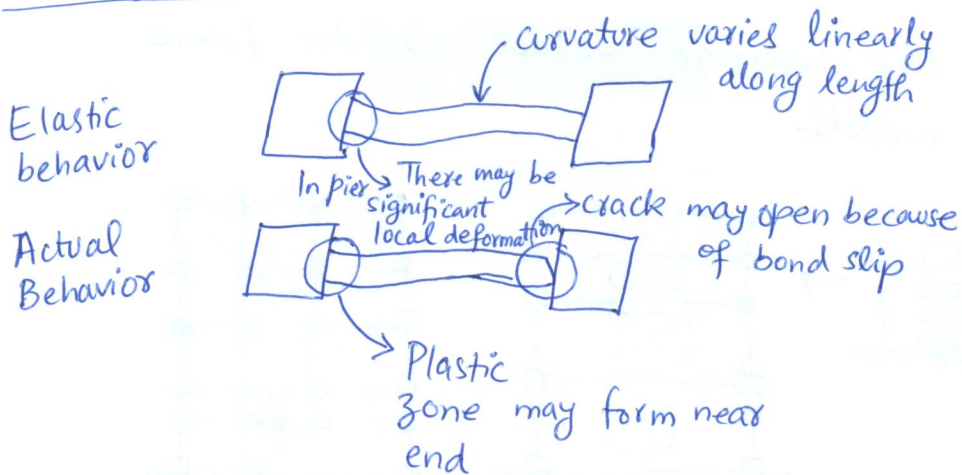 curvature varies linearly
along length
Elastic
behavior
In pier There may be
significant
local deformation
crack may open because
of bond slip
Actual
Behavior
Plastic
zone may form near
end